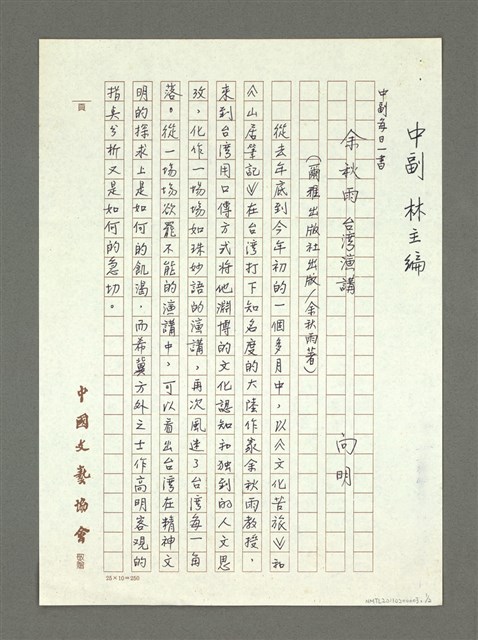 中副 林主編
中副每日一書
余秋雨 台灣演講 向明
（爾雅出版社出版/余秋雨著）
從去年底到今年初的一個多月中，以《文化苦旅》和
《山居筆記》在台灣打下知名度的大陸作家余秋雨教授，
來到台灣用口傳方式將他淵博的文化認知和獨到的人文思
攷，化作一場場如珠妙語的演講，再次風迷了台灣每一角
落。從一場場欲罷不能的演講中，可以看出台灣在精神文
明的探求上是如何的飢渴，而希冀方外之士作高明客觀的
指夷分析又是如何的急切。
頁
中國文藝協會
25×10=250